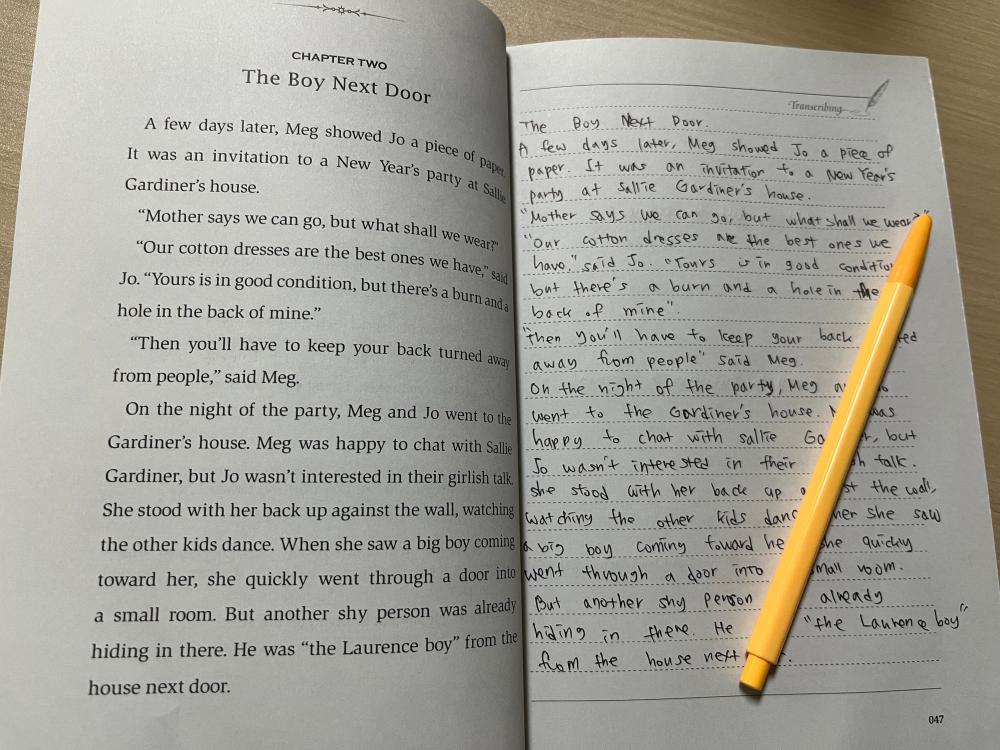 CHAPTER TWO
The Boy Next Door
A few days later, Meg showed Jo a piece of paper.
It was an invitation to a New Year's party at Sallie
Gardiner's house.
“Mother says we can go, but what shall we wear?”
“Our cotton dresses are the best ones we have,” said
Jo. “Yours is in good condition, but there's a burn and a
hole in the back of mine.”
“Then you'll have to keep your back turned away
from people,” said Meg.
On the night of the party, Meg and Jo went to the
Gardiner's house. Meg was happy to chat with Sallie
Gardiner, but Jo wasn't interested in their girlish talk.
She stood with her back up against the wall, watching
the other kids dance. When she saw a big boy coming
toward her, she quickly went through a door into
a small room. But another shy person was already
hiding in there. He was “the Laurence boy” from the
house next door.
Transcribing
The Boy Next Door.
A few days later, Meg showed Jo a piece of
paper. It was an invitation to a New Year's
party at Sallie Gardiner's house.
“Mother says we can go, but what shall we wear?”
“Our cotton dresses are the best ones we
have.” said Jo. “Yours is in good
but there's a burn and a hole in the
back of mine”.
“Then you'll have to keep your back
away from people” said Meg.
On the night of the party, Meg
went to the Gardiner's house. was
happy to chat with sallie but
Jo wasn't interested in their talk.
she stood with her back up the wall,
watching the other kids she saw
a big boy coming toward quickly
went through a door into room.
But another shy person already
hiding in there. He “the Laurence boy”
from the house next
047